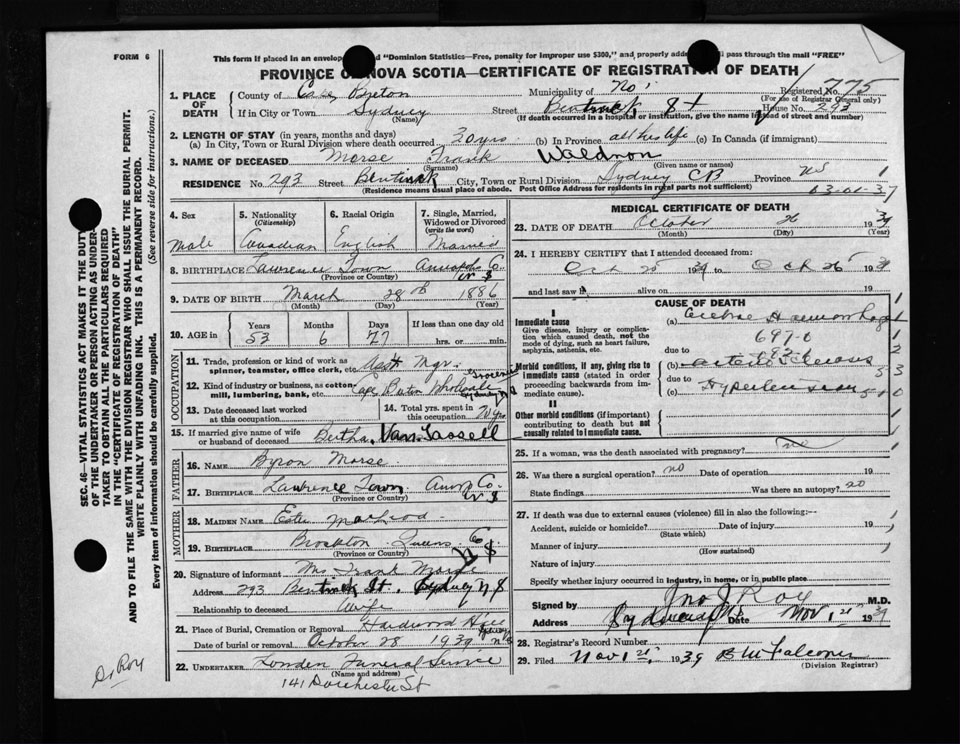 FORM 6
This form if placed in an envelop d "Dominion Statistics—Free, penalty for improper use $300," and properly add pass through the mail "FREE"
PROVINCE OF NOVA SCOTIA—CERTIFICATE OF REGISTRATION OF DEATH
Registered No. 775
(For use of Registrar General only)
1. PLACE OF DEATH
County of Cape Breton Municipality of No 1
If in City or Town Sydney (Name) Street Bentinck St House No. 293
(If death occurred in a hospital or institution, give the name instead of street and number)
2. LENGTH OF STAY (in years, months and days)
(a) In City, Town or Rural Division where death occurred 30 yrs. (b) In Province all his life (c) In Canada (if immigrant)
3. NAME OF DECEASED Morse Frank Waldron
(Surname) (Given name or names)
RESIDENCE No. 293 Street Bentinck City, Town or Rural Division Sydney CB Province NS
(Residence means usual place of abode. Post Office Address for residents in rural parts not sufficient)
4. Sex
Male
5. Nationality (Citizenship)
Canadian
6. Racial Origin
English
7. Single, Married, Widowed or Divorced (write the word)
Married
8. BIRTHPLACE Lawrence Town Annapolis Co. N S
(Province or Country)
9. DATE OF BIRTH March 28th 1886
(Month) (Day) (Year)
10. AGE in
Years 53
Months 6
Days
If less than one day old
hrs. or min.
OCCUPATION
11. Trade, profession or kind of work as spinner, teamster, office clerk, etc. Asst Mgr.
12. Kind of industry or business, as cotton mill, lumbering, bank, etc. Cape Breton Wholesale Sydney
13. Date deceased last worked at this occupation
14. Total yrs. spent in this occupation
15. If married give name of wife or husband of deceased Bertha Van Tassell
FATHER
16. NAME Byron Morse
17. BIRTHPLACE Lawrence Town Anna Co. N S
(Province or Country)
MOTHER
18. MAIDEN NAME MacLeod
19. BIRTHPLACE Queens Co N S
(Province or Country)
20. Signature of informant Mrs Frank Morse
Address 293 Bentinck St. Sydney N S
Relationship to deceased Wife
21. Place of Burial, Cremation or Removal Hardwood Hill
Date of burial or removal October 28 1939
22. UNDERTAKER Funeral Service
(Name and address)
141 Dorchester St
Dr Roy
MEDICAL CERTIFICATE OF DEATH
23. DATE OF DEATH October 26 1939
(Month) (Day) (Year)
24. I HEREBY CERTIFY that I attended deceased from:
Oct 25 1939 to Oct 26 1939
and last saw h alive on 19
CAUSE OF DEATH
I
Immediate cause
Give disease, injury or complication which caused death, not the mode of dying, such as heart failure, asphyxia, asthenia, etc.
(a) Cerebral Haemorrhage
due to
Morbid conditions, if any, giving rise to immediate cause (stated in order proceeding backwards from immediate cause).
(b) arterio sclerosis
due to
(c) Hypertension
II
Other morbid conditions (if important) contributing to death but not causally related to immediate cause.
25. If a woman, was the death associated with pregnancy? no
26. Was there a surgical operation? no Date of operation 19
State findings Was there an autopsy? no
27. If death was due to external causes (violence) fill in also the following:—
Accident, suicide or homicide? Date of injury 19
(State which)
Manner of injury
(How sustained)
Nature of injury
Specify whether injury occurred in industry, in home, or in public place
Signed by Jno J Roy M.D.
Address Sydney NS Date Nov 1st 1939
28. Registrar's Record Number
29. Filed Nov 1st, 1939 B McFalconer
(Division Registrar)
SEC. 46—VITAL STATISTICS ACT MAKES IT THE DUTY
OF THE UNDERTAKER OR PERSON ACTING AS UNDER-
TAKER TO OBTAIN ALL THE PARTICULARS REQUIRED
IN THE "CERTIFICATE OF REGISTRATION OF DEATH"
AND TO FILE THE SAME WITH THE DIVISION REGISTRAR WHO SHALL ISSUE THE BURIAL PERMIT.
WRITE PLAINLY WITH UNFADING INK. THIS IS A PERMANENT RECORD.
Every item of information should be carefully supplied. (See reverse side for instructions.)